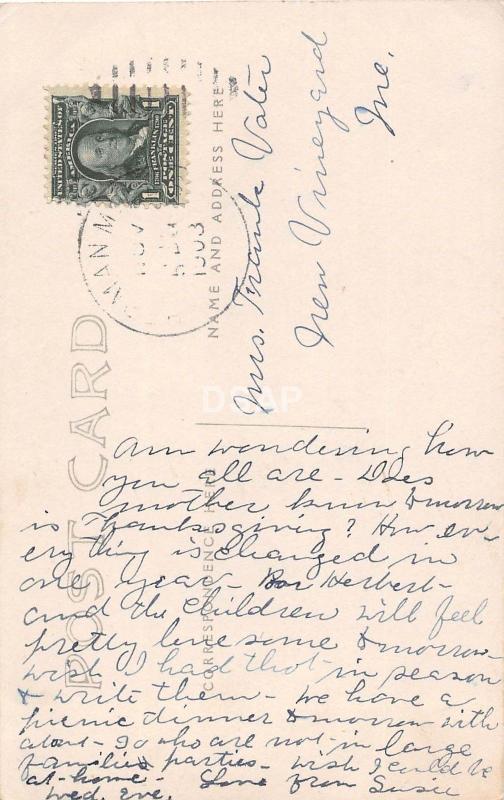 POST CARD
NAME AND ADDRESS HERE
CORRESPONDENCE HERE
UNITED STATES OF AMERICA
POSTAGE
ONE CENT
1
1
MAN M
NOV
1903
Mrs. Frank Vater
New Vineyard
Me.
Am wondering how
you all are - Does
mother know tomorrow
is Thanksgiving? How ev-
erything is changed in
one year - Herbert -
and the children will feel
pretty lonesome tomorrow -
wish I had thot - in season
& write them - we have a
picnic dinner tomorrow with
about - 30 who are not - in large
families parties - wish I could be
at - home - Love from Susie
Wed. Eve.